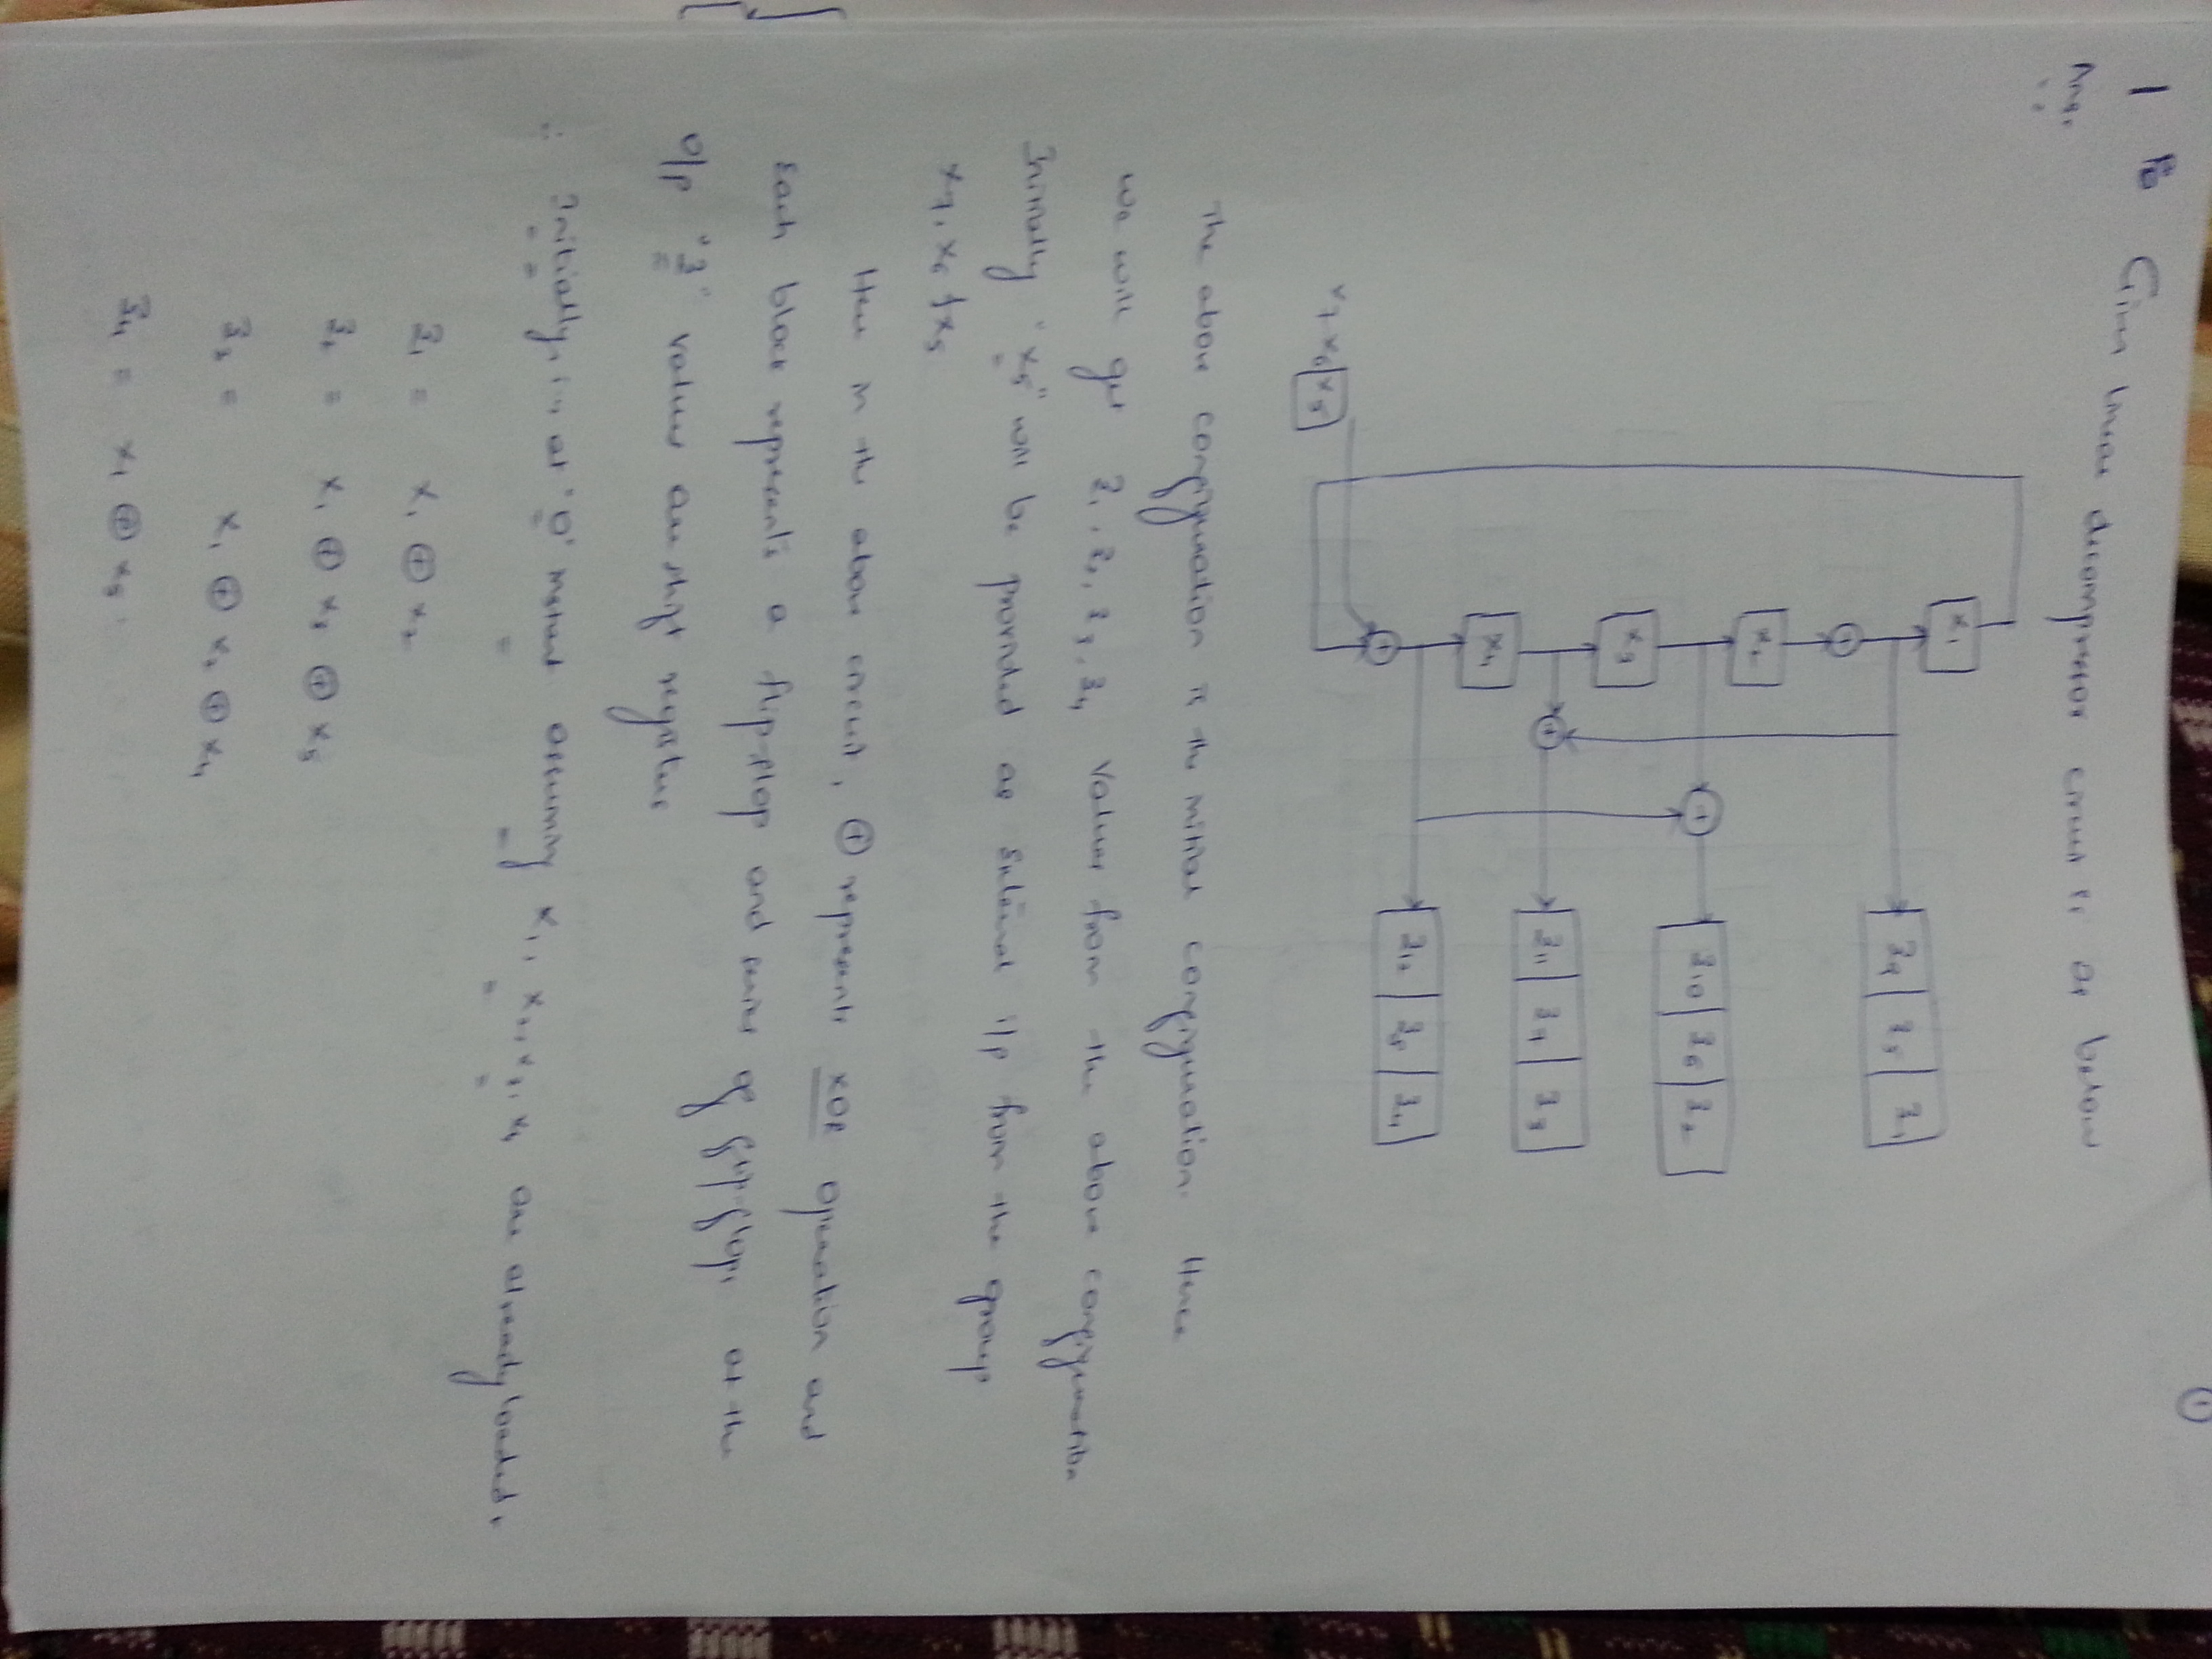 ①
1 B Given linear decompressor circuit is as below
Ans:
x1
z9 z5 z1
+
x2
+ z10 z6 z2
x3
+ z11 z7 z3
x4
z12 z8 z4
+
x7 x6 x5
The above configuration is the initial configuration. Hence
we will get z1, z2, z3, z4 values from the above configuration
Initially "x5" will be provided as external i/p from the group
x7, x6 & x5
Here in the above circuit, ⊕ represents XOR operation and
Each block represents a flip-flop and series of flip-flops at the
o/p "z" values are shift registers
∴ Initially, i.e. at "0" instant assuming x1, x2, x3, x4 are already loaded.
z1 = x1 ⊕ x2
z2 = x1 ⊕ x3 ⊕ x5
z3 = x1 ⊕ x2 ⊕ x4
z4 = x1 ⊕ x5